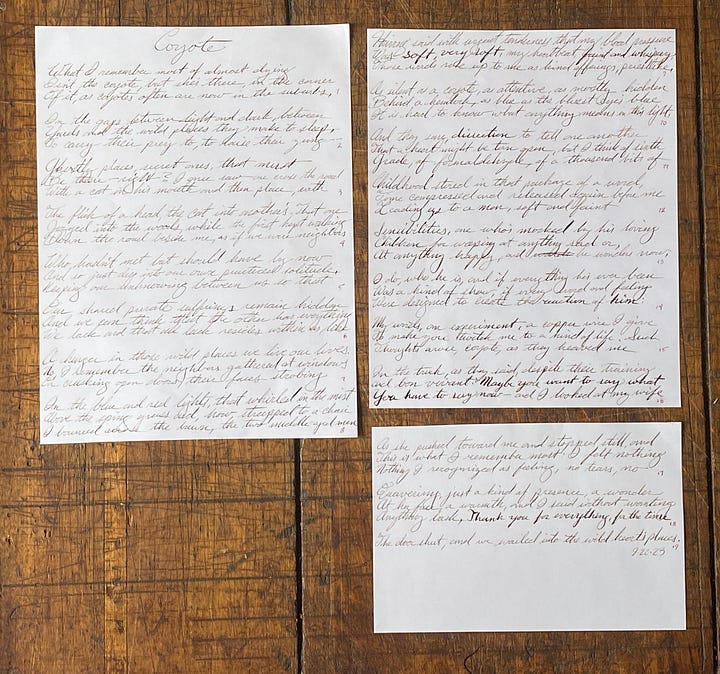 Coyote
What I remember most of almost dying
Isn't the coyote, but she's there, in the corner
Of it, as coyotes often are now in the suburbs, 1
In the gaps between light and dark, between
Yards and the wild places they make to sleep,
To carry their prey to, to raise their young— 2
Ghostly places, secret ones, that must
Be there right? I once saw one cross the road
With a cat in his mouth and then place, with 3
The flick of a head, the cat into another's. That one
Jogged into the woods while the first kept walking
Down the road beside me, as if we were neighbors 4
Who hadn't met but should have by now
And so just dug into our own practiced solitude,
Keeping our unknowing between us so that 5
Our shared private sufferings remain hidden
And we can think that the other has everything
We lack and that all lack resides within us, like 6
A hunger in those wild places we live our lives.
As I remember the neighbors gathered at windows
Or cracking open doors, their faces strobing 7
In the blue and red lights that whirled in the mist
Above the spring grass and how, strapped to a chair
I bounced across the lawn, the two middle-aged men 8
said with urgent tenderness that my blood pressure
Was soft, very soft, my heartbeat faint and whispery,
Those words rose up to me as kind offerings, priestlike, 9
As silent as a coyote, as attentive, as mostly hidden
Behind a hemlock, as blue as the bluest eyes blue
It is hard to know what anything means in this light, 10
And they same direction to tell one another
That a heart might be torn open, but I think of sixth
Grade, of formaldehyde, of a thousand bits of 11
Childhood stored in that package of a word,
Some compressed and released again before me
Leading up to a man, soft and faint 12
Sensibilities, one who's mocked by his loving
Children for weeping at anything sad or,
At anything happy, and would be wonders now, 13
I do, who he is, and if everything his ever been
Was a kind of show, if every word and feeling
Were designed to create the reaction of him. 14
My words, an experiment, a copper wire I give
To make you twitch me to a kind of life. Such
Thoughts arose, coyote, as they heaved me 15
In the truck, as they said, despite their training
and bon vivant: Maybe you want to say what
You have to say now—and I looked at my wife 16
As she pushed toward me and stopped still, and
This is what I remember most, I felt nothing
Nothing I recognized as feeling, no tears, no 17
Quavering, just a kind of presence, a wonder
At her face, a warmth, and I said without wanting
Anything back, Thank you for everything, for the time 18
The door shut, and we wailed into the wild heart's places. 19
9-26-23